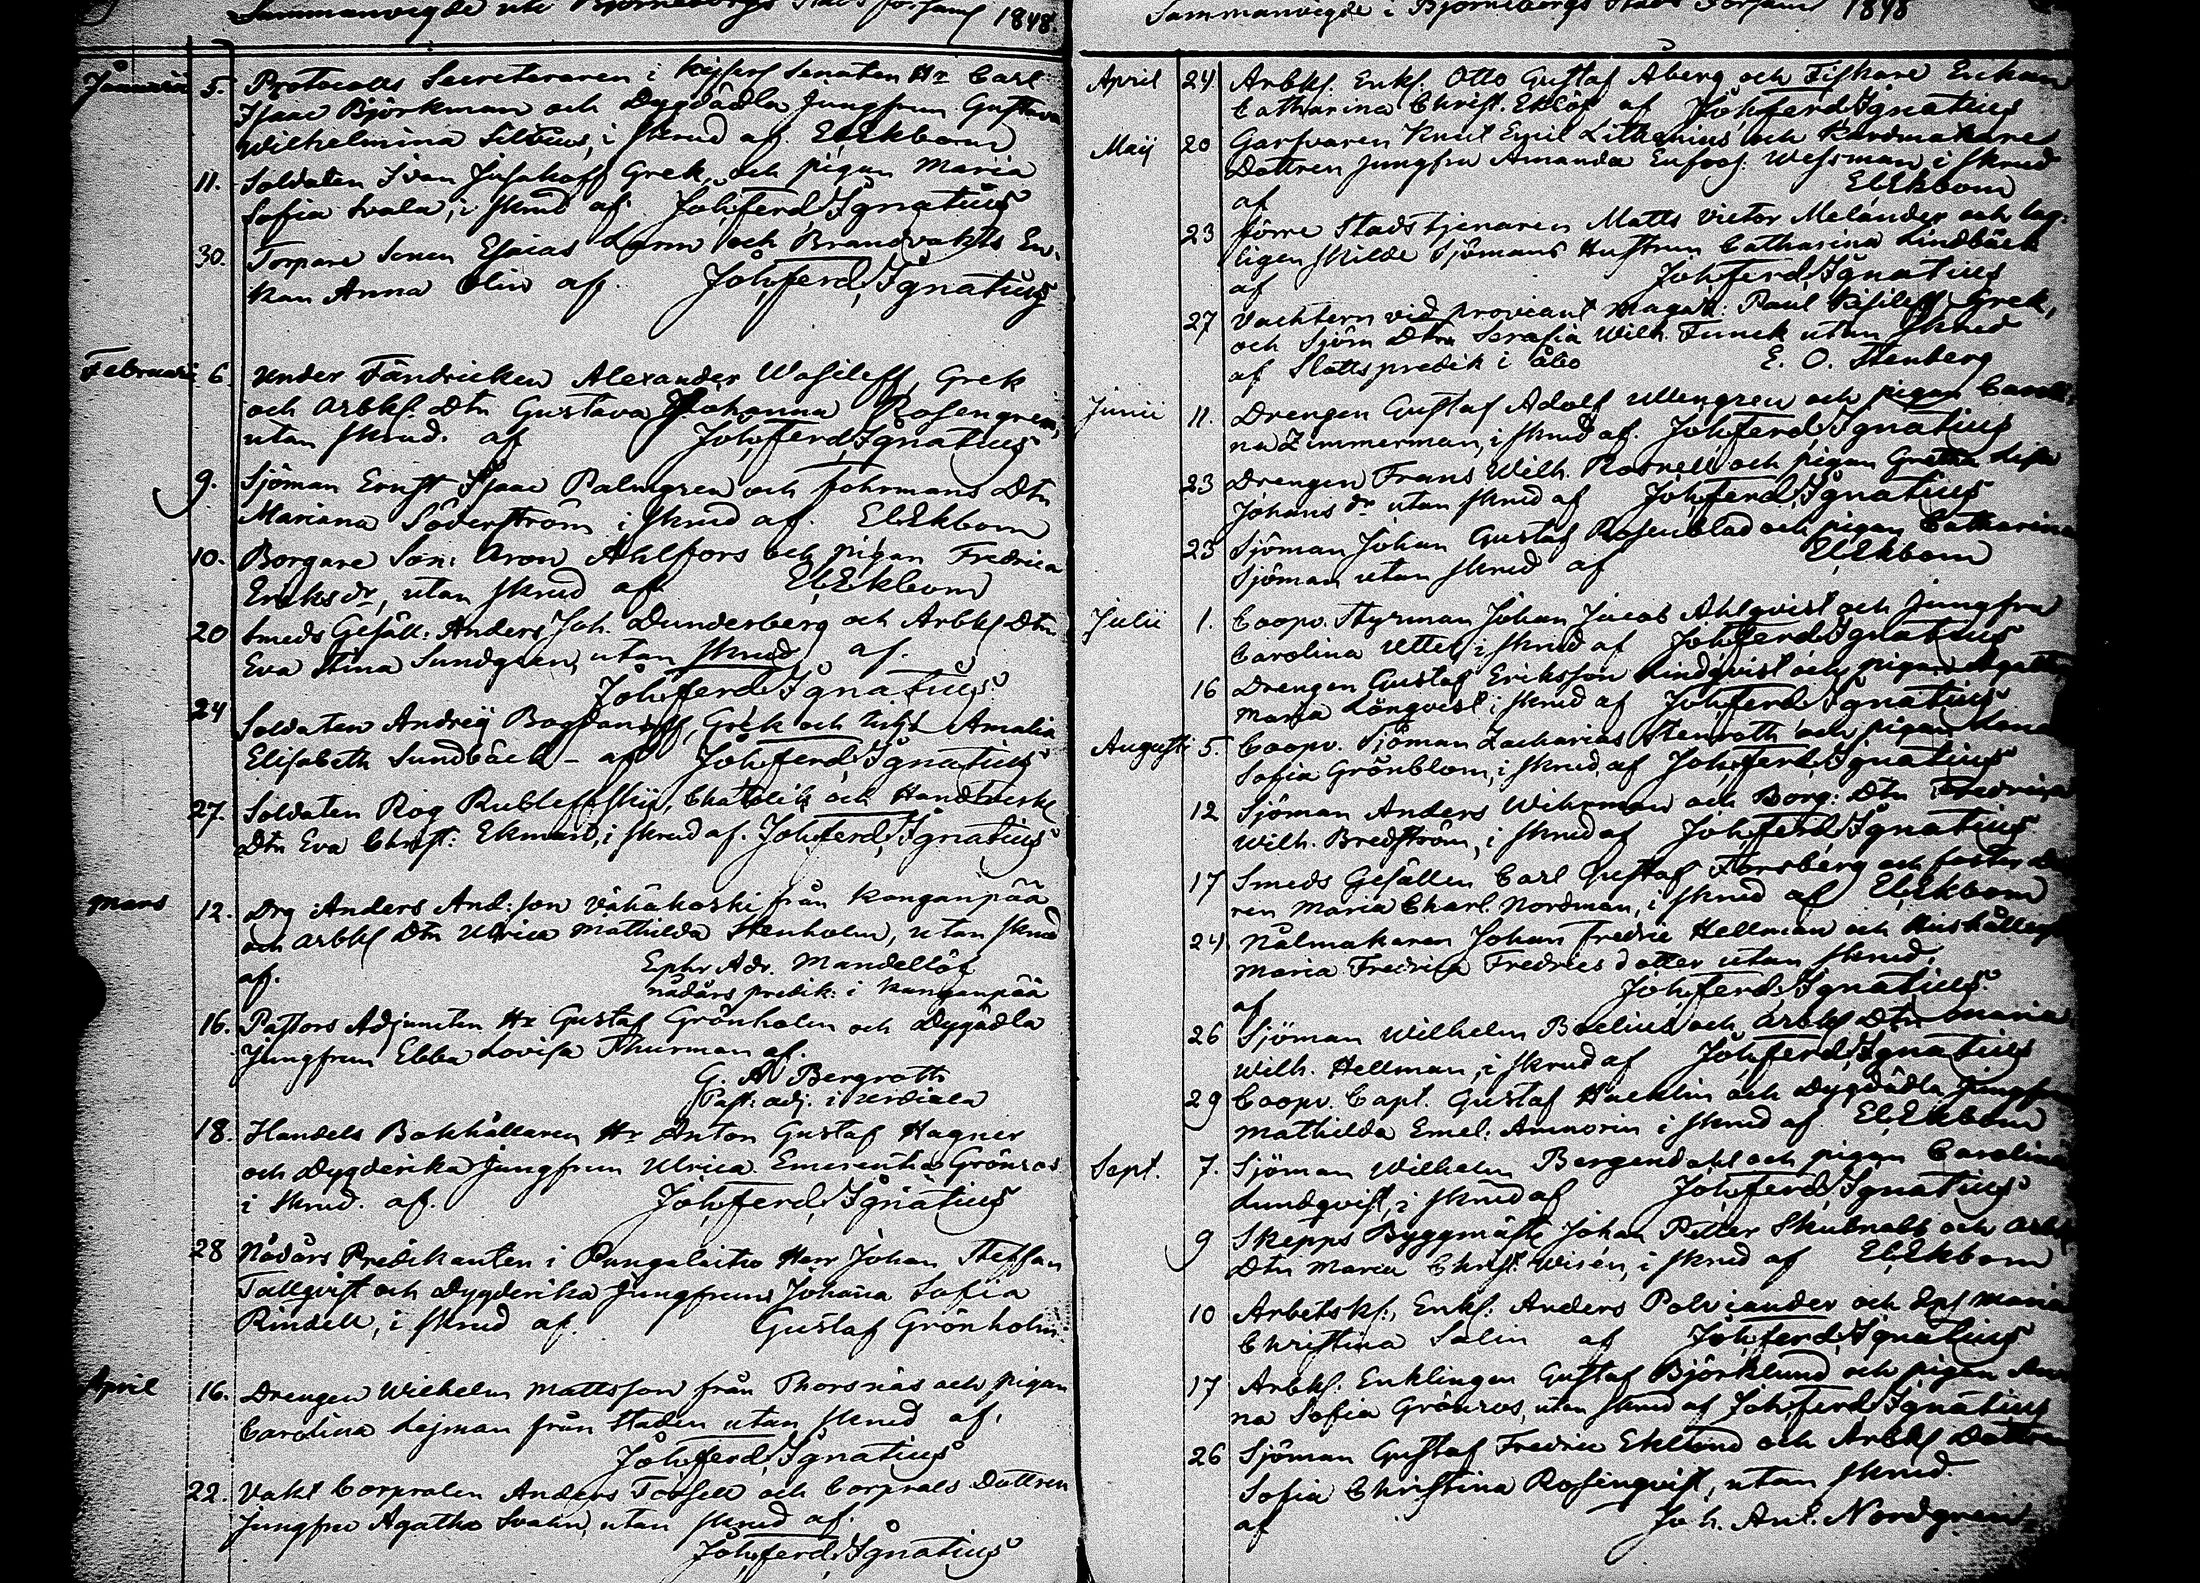 Sammanvigde uti Björneborgs Stads församl 1848.
Januarii 5. Protocolls Secreteraren i Kejserl Senaten Hr Carl
Isaac Björkman och Dygdädla Jungfrun Gustava
Wilhelmina i skrud af ElEkbom
11. Soldaten Ivan Grek, och pigan Maria
Sofia Svala, i skrud af Joh, ferd, Ignatius
30. Torpare Sonen Esaias Larm och Brandvakts En-
kan Anna Olin af. Joh, ferd, Ignatius
Februarii 6. Under Fändricken Alexander Wasileff, Grek
och arbks. Dtn Gustava Johanna Rosengren,
utan skrud. af Joh, ferd, Ignatius
9. Sjöman Ernst Isaac Palmgren och fohrmans Dtn
Mariana Söderström i skrud af. ElEkbom
10. Borgare Son: Aron Ahlfors och pigan Fredrica
Eriksdr, utan skrud af ElEkbom
20 Smeds Gesäll: Anders Joh. Dunderberg och Arbks Dtn
Eva Stina Sundgren, utan skrud af.
Joh, ferd, Ignatius
24 Soldaten Andreij Bogdanoff, Grek och Amalia
Elisabeth Sundbäck - af Joh, ferd, Ignatius
27. Soldaten Rog Chatolik och Handtverks
Dtn Eva Christ: Ekmark, i skrud af. Joh, ferd, Ignatius
Mars 12. Drg Anders And:son Vähäkoski från Kanganpää
och arbks Dtn Ulrica Mathilda Stenholm, utan skrud
af. Ephr Adr. Mandellöf
nådårs predik: i Kanganpää
16. Pastors Adjuncten Hr Gustaf Grönholm och Dygdädla
Jungfrun Ebba Lovisa Thurman af.
G. A Bergroth
Past: adj. i Urdiala
18. Handels Bokhållaren Hr Anton Gustaf Hagner
och Dygderika Jungfrun Ulrica Emerentia Grönros
i skrud. af. Joh, ferd, Ignatius
28 Nådårs Predikanten i Pungalaitio Herr Johan Steffan
Tallqvist och Dygderika Jungfrun Johana Sofia
Rindell, i skrud af. Gustaf Grönholm.
April 16. Drengen Wilhelm Mattsson från Thorsnäs och pigan
Carolina Lejman från Staden utan skrud af.
Joh, ferd, Ignatius
22. Vakt Corpralen Anders och Corprals Dottren
Jungfru Agatha Svahn, utan skrud af.
Joh, ferd, Ignatius
Sammanvigde i Björneborgs Stads Församl 1848
April 24 Arbks. Enkl. Otto Gustaf Åberg och Fiskare Enkan
Catharina Christ. Eklöf af Joh, ferd, Ignatius
Maij 20 Garfvaren Knut Emil Lithenius och
Dottren Jungfru Amanda Eufros. Wessman i skrud
af ElEkbom
23 förre Stadstjenaren Matts Victor Melander och lag-
ligen skilde Sjömans Hustrun Catharina Lindbäck
af Joh, ferd, Ignatius
27 Vachtern vid proviant Magaz: Paul Kisileff Grek,
och Sjöm Dtn Serafia Wilh. Funck utan skrud
af Slottspredik i Åbo E. O. Stenberg
Junii 11. Drengen Gustaf Adolf Ullengren och pigan Caroli-
na Zimmerman, i skrud af. Joh, ferd, Ignatius
23 Drengen Frans Wilh. Rosnell och pigan Greta Lisa
Johansdr utan skrud af Joh, ferd, Ignatius
23 Sjöman Johan Gustaf Rosenblad och pigan Catharina
Sjöman utan skrud af ElEkbom
Julii 1. Coopv. Styrman Johan Jacob Ahlqvist och Jungfru
Carolina Utter, i skrud af Joh, ferd, Ignatius
16 Drengen Gustaf Eriksson Lindqvist och pigan Agatha
Maria Lönqvist, i skrud af Joh, ferd, Ignatius
Augusti 5. Coopv. Sjöman Zacharias Stenroth och pigan Lena
Sofia Grönblom, i skrud, af Joh, ferd, Ignatius
12 Sjöman Anders Wihrman och Borg: Dtn Fredrica
Wilh. Bredström, i skrud af Joh, ferd, Ignatius
17 Smeds Gesällen Carl Gustaf Forsberg och foster
ren Maria Charl. Nordman, i skrud af ElEkbom
24 Nålmakaren Johan Fredric Hellman och
Maria Fredrica Fredricsdotter utan skrud.
af Joh, ferd, Ignatius
26 Sjöman Wilhelm Boelius och arbks Dtn Maria
Wilh. Hellman, i skrud af Joh, ferd, Ignatius
29 Coopv. Capt. Gustaf och Dygdädla Jungfrun
Mathilda Emel: Ammorin i skrud af ElEkbom
Sept. 7. Sjöman Wilhelm Bergendahl och pigan Carolina
Lundqvist, i skrud af Joh, ferd, Ignatius
9 Skepps Byggmäst Johan Petter Skutnabb och arbks
Dtn Maria Christ. Wisén, i skrud af ElEkbom
10 Arbetsks, Enkl. Anders Polviander och Maria
Christina Salin af Joh, ferd, Ignatius
17 Arbks. Enklingen Gustaf Björklund och pigan An
na Sofia Grönros, utan skrud af Joh, ferd, Ignatius
26 Sjöman Gustaf Fredric Eklund och Arbks Dottren
Sofia Christina Rosenqvist, utan skrud.
af Joh. Ant. Nordgren.